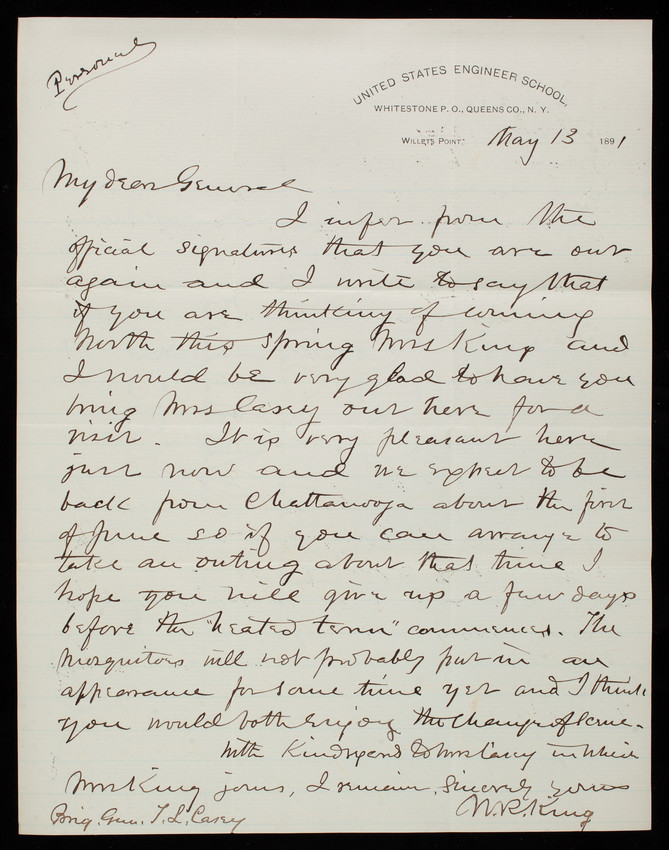 Personal
UNITED STATES ENGINEER SCHOOL,
WHITESTONE P. O., QUEENS CO., N. Y.
WILLETS POINT. May 13 1891
My dear General
I infer from the
official signatures that you are out
again and I write to say that
if you are thinking of coming
North this Spring Mrs King and
I would be very glad to have you
bring Mrs Casey out here for a
visit. It is very pleasant here
just now and we expect to be
back from Chattanooga about the first
of June so if you can arrange to
take an outing about that time I
hope you will give us a few days
before the "heated term" commences. The
Mosquitoes will not probably put in an
appearance for some time yet and I think
you would both enjoy the change of scene.
With kind regards to Mrs Casey in which
Mrs King joins, I remain, sincerely yours
W. R. King
Brig. Gen. T. L. Casey